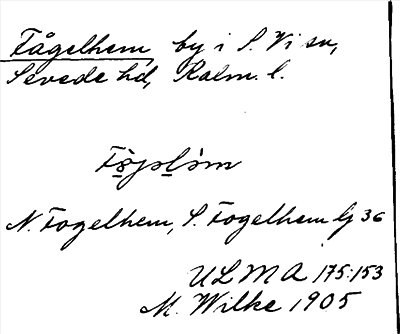 Fågelhem by i S. Vi sn,
Sevede hd, Kalm. l.
N. Fogelhem, S. Fogelhem lj 36
ULMA 175:153
M. Wilke 1905